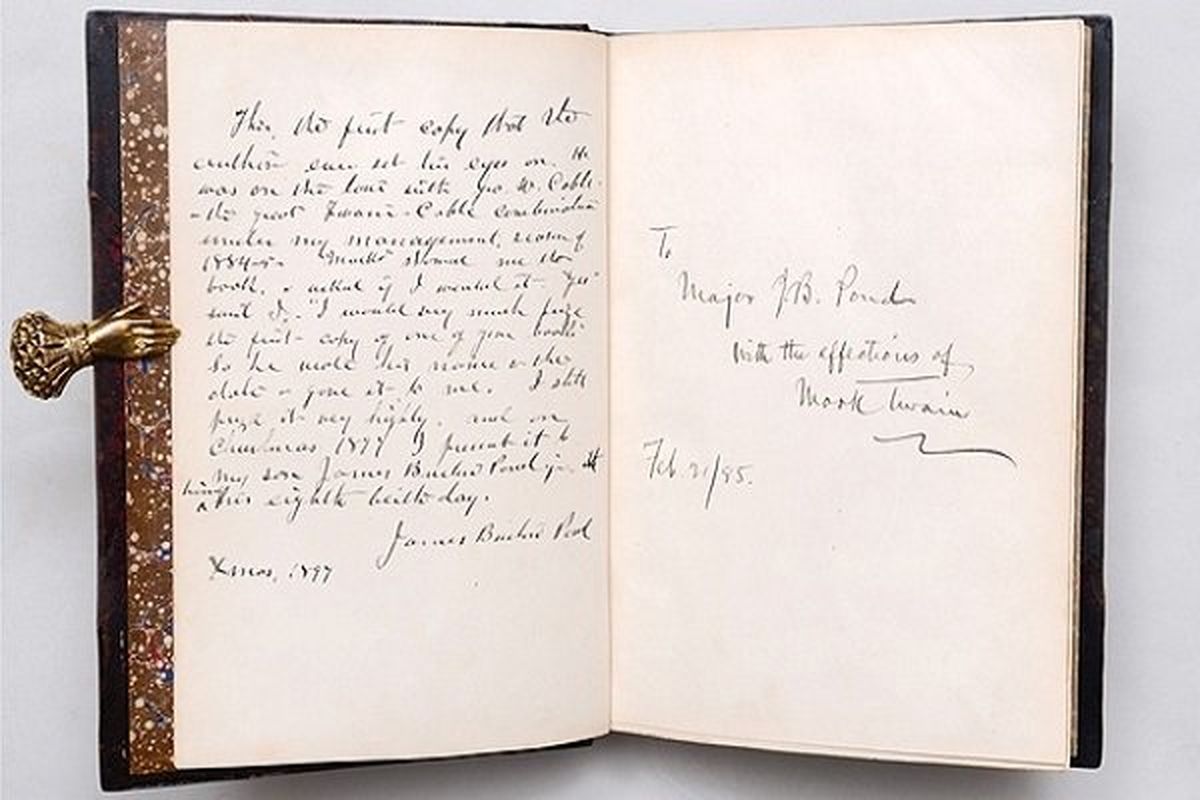 This, the first copy that the
author ever set his eyes on. He
was on the tour with Geo. W. Cable.
- the great Twain-Cable combination
under my management, season of
1884-5. "Mark" showed me the
book, & asked if I wanted it. "Yes"
said I. "I would very much prize
the first copy of one of your books"
So he wrote his name & the
date & gave it to me. I still
prize it very highly, and on
Christmas 1897 I present it to
my son James Burton Pond jr. it
being
his eighth birthday.
James Burton Pond
Xmas, 1897
To
Major J.B. Pond
with the affections of
Mark Twain
Feb. 21/85.